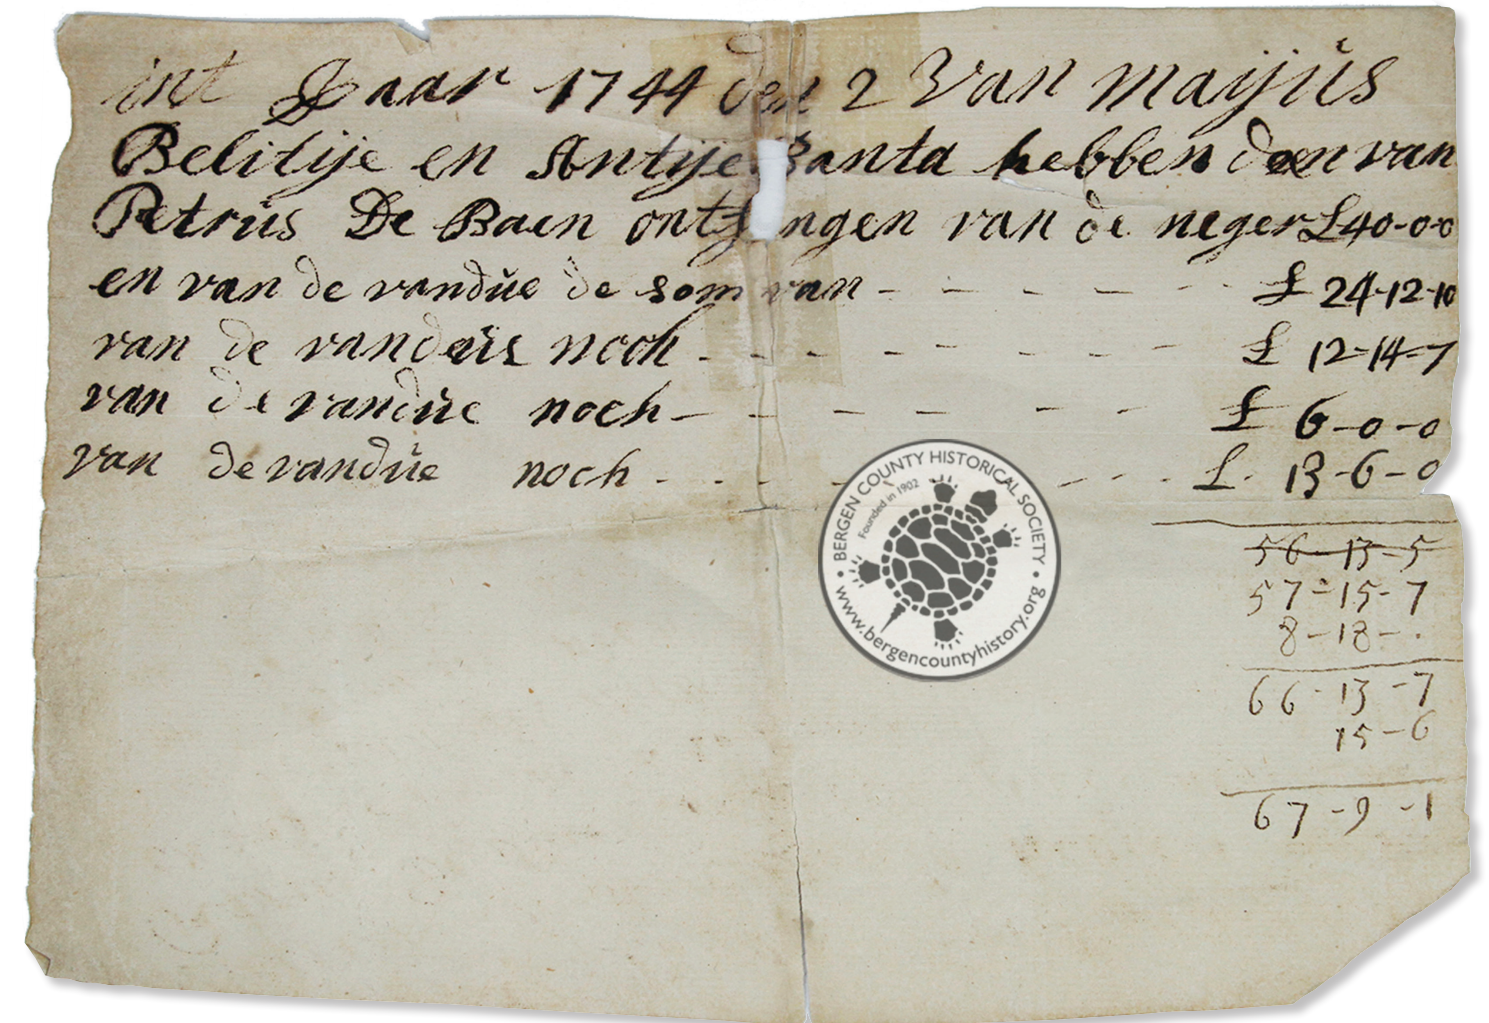 int Jaar 1744 den 2 van maijŭs
Belitije en Antije Banta hebben den van
Petrŭs De Baen ontfangen van de neger £40-0-0
en van de vandŭe de som van - - - - - - £ 24-12-10
van de vandŭe noch - - - - - - - - £ 12-14-7
van de vandŭe noch - - - - - - £ 6-0-0
van de vandŭe noch - - - - - - - £. 13-6-0
56-13-5
57-15-7
8-18-.
66-13-7
15-6
67-9-1
BERGEN COUNTY HISTORICAL SOCIETY
Founded in 1902
www.bergencountyhistory.org